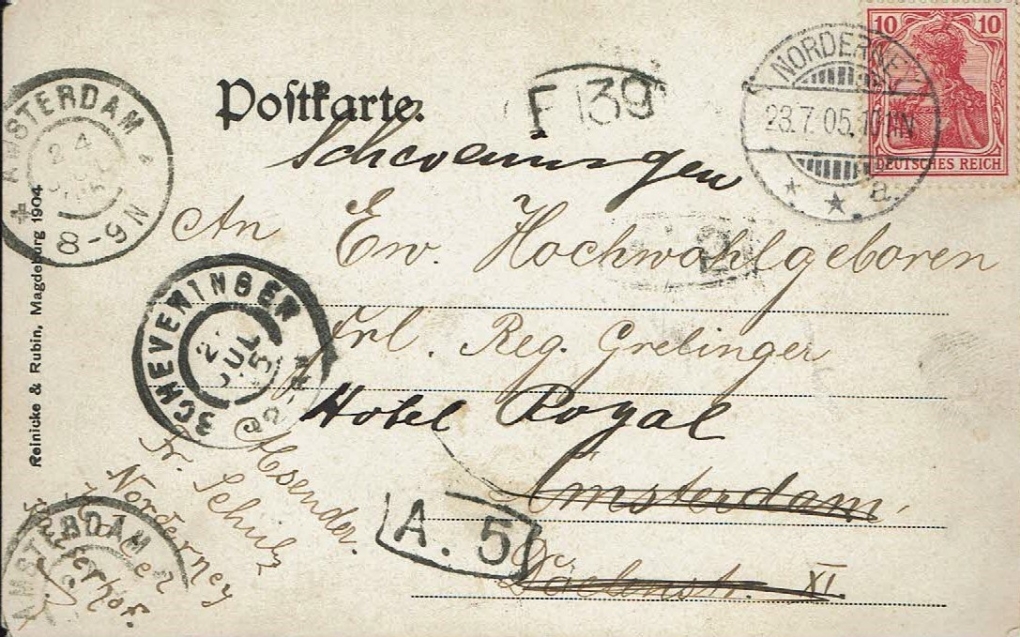 10 10
DEUTSCHES REICH
NORDERNEY
23.7.05.10-11N
a.
Postkarte.
F 139
AMSTERDAM
24
8-9N
Scheveningen
An Ew. Hochwohlgeboren
2
Frl. Reg. Grelinger
SCHEVENINGEN
JUL
Hotel Royal
Amsterdam
Doelenstr. XI.
A. 5
Absender.
Fr. Schulz
Norderney
AMSTERDAM
Reinicke & Rubin, Magdeburg 1904